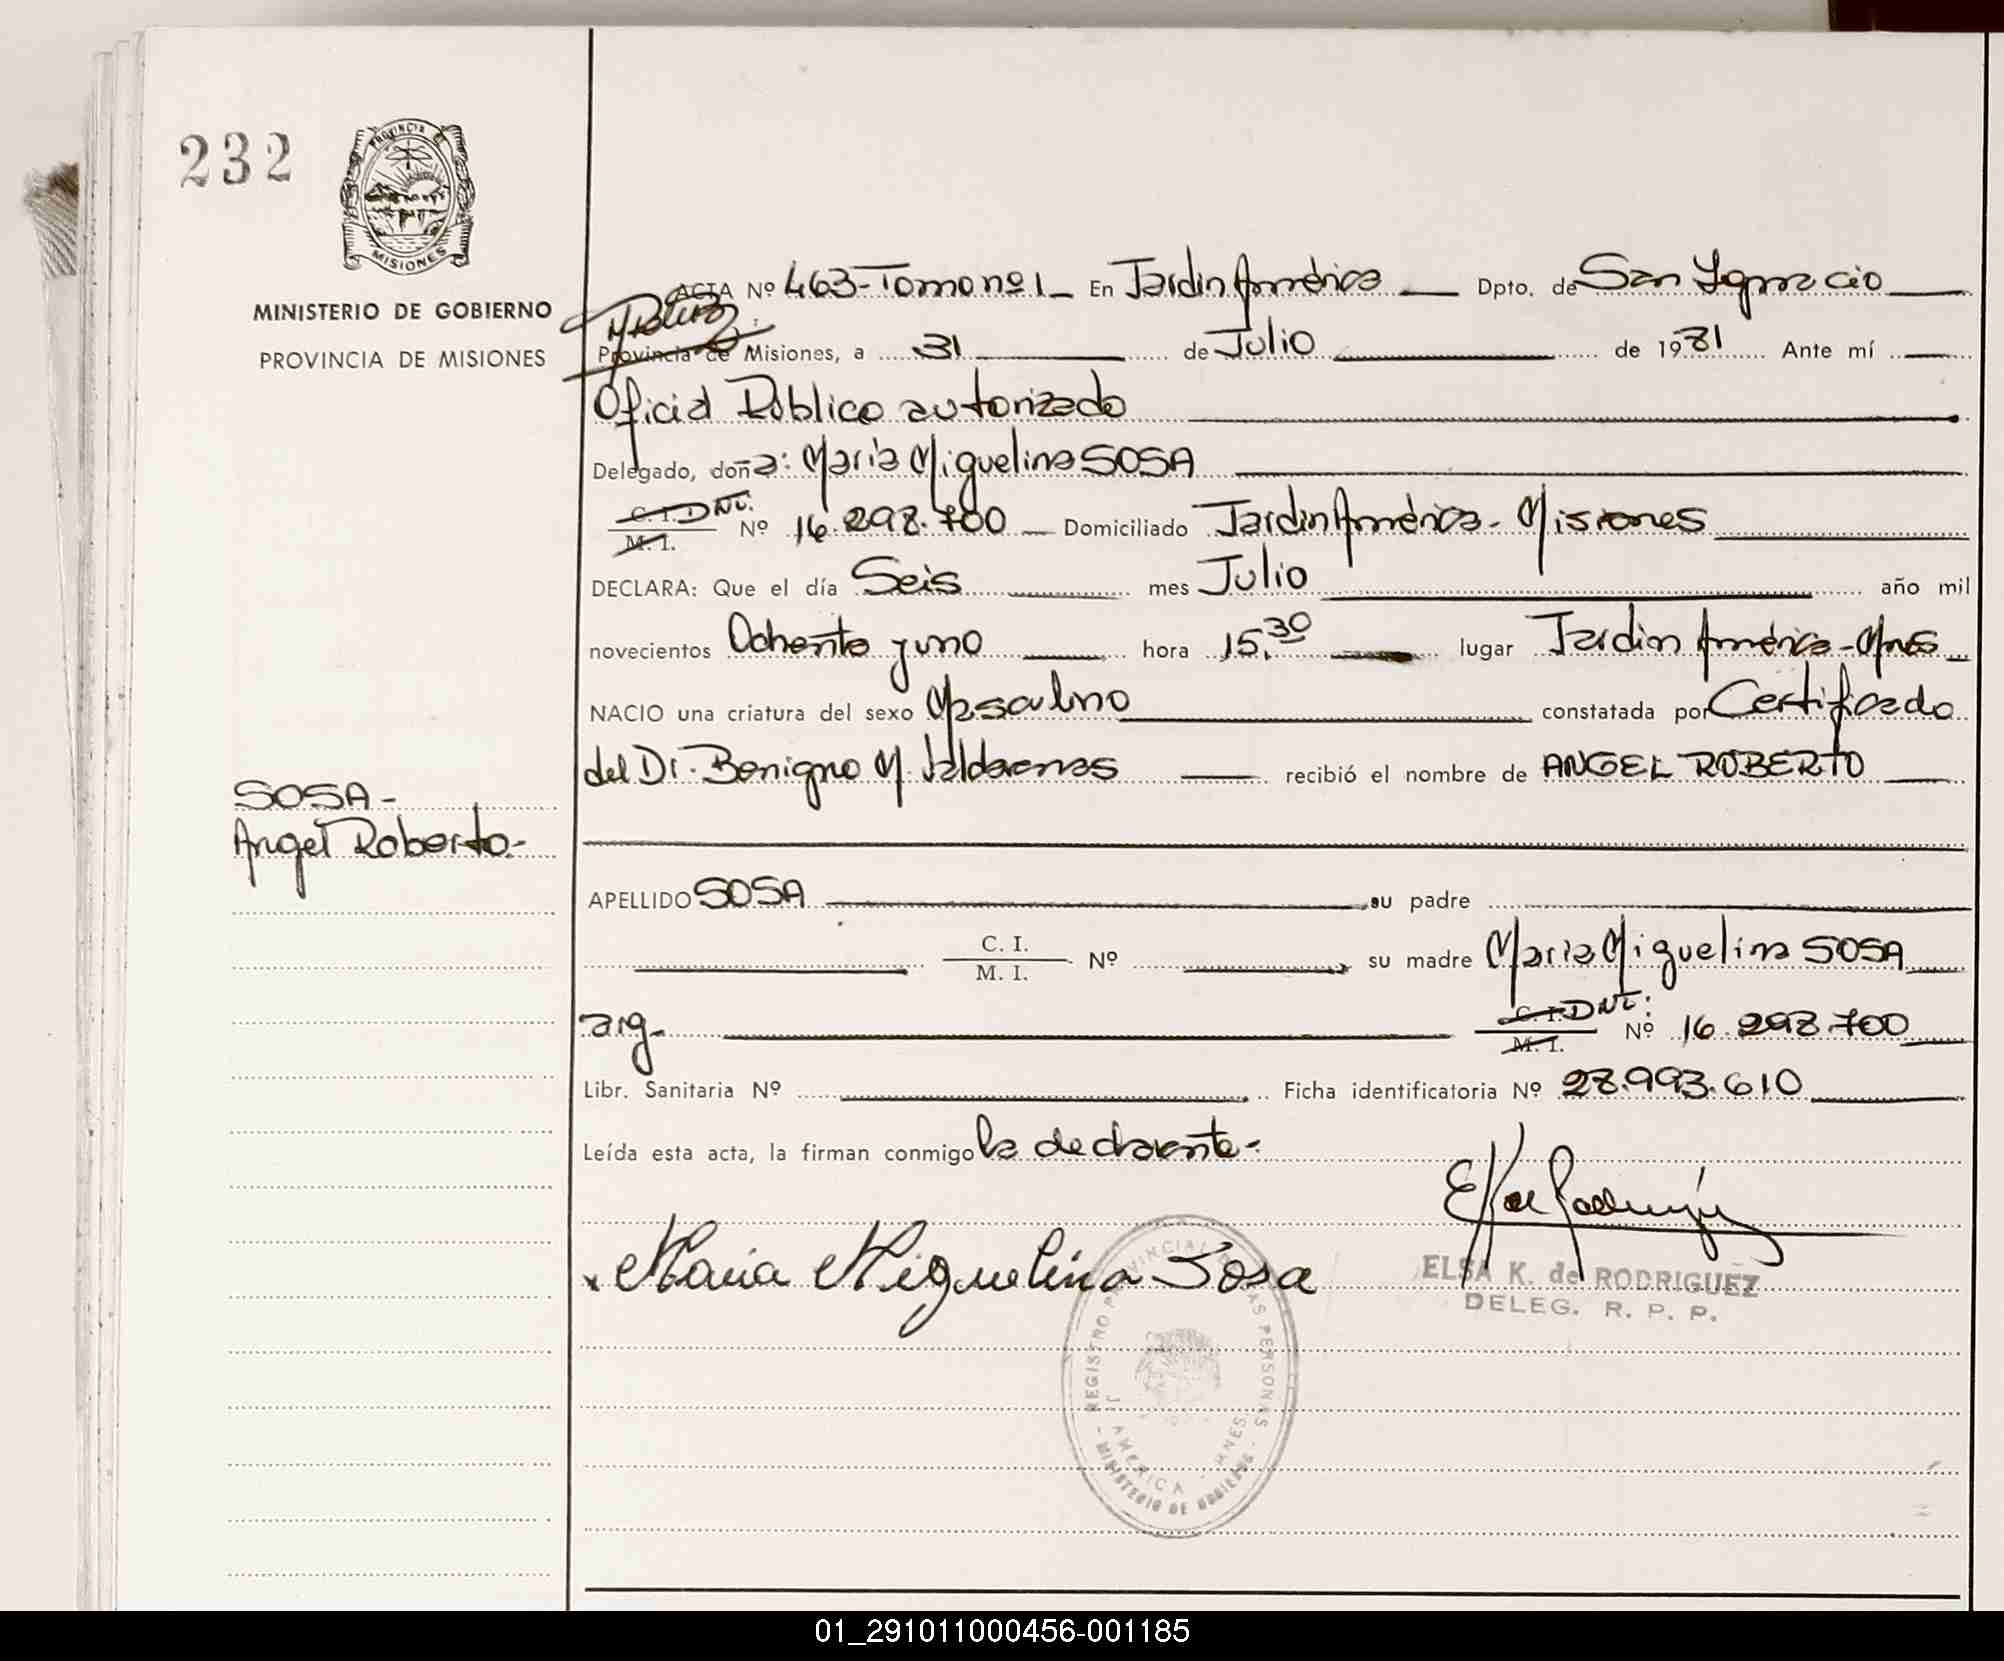 232
PROVINCIA DE
MISIONES
MINISTERIO DE GOBIERNO
PROVINCIA DE MISIONES
ACTA Nº 463-Tomo nº 1 En Jardin América Dpto. de San Ignacio
Provincia de Misiones, a 31 de Julio de 1981 Ante mí
Oficial Público autorizado
Delegado, doña: Maria Miguelina SOSA
C. I. DNI. Nº 16.298.700 Domiciliado Jardin América - Misiones
M. I.
DECLARA: Que el día Seis mes Julio año mil
novecientos Ochenta y uno hora 15,30 lugar Jardin América - Mnes
NACIO una criatura del sexo Masculino constatada por Certificado
del Dr. Benigno M. recibió el nombre de ANGEL ROBERTO
SOSA -
Angel Roberto.-
APELLIDO SOSA su padre
C. I.
M. I. Nº su madre Maria Miguelina SOSA
arg. C. I. DNI: Nº 16.298.700
M. I.
Libr. Sanitaria Nº Ficha identificatoria Nº 28.993.610
Leída esta acta, la firman conmigo la declarante -
Maria Miguelina Sosa
ELSA K. de RODRIGUEZ
DELEG. R. P. P.
REGISTRO PROVINCIAL DE LAS PERSONAS
J. AMERICA - MNES.
- MINISTERIO DE GOBIERNO -
01_291011000456-001185